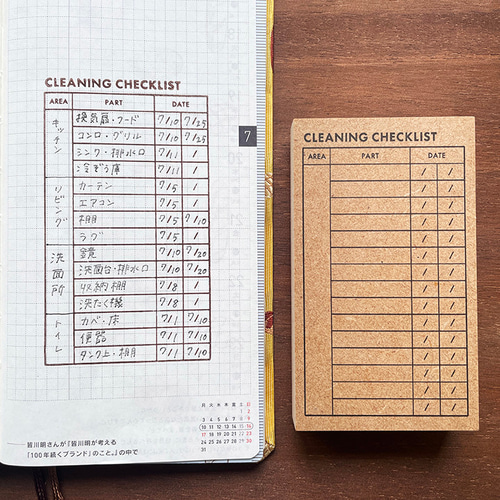 CLEANING CHECKLIST
AREA PART DATE
キッチン
換気扇・フード 7/10 7/25
コンロ・グリル 7/10 7/25
シンク・排水口 7/1 /
冷ぞう庫 7/11 /
リビング
カーテン 7/5 /
エアコン 7/5 /
棚 7/5 7/10
ラグ 7/5 /
洗面所
鏡 7/10 7/20
洗面台・排水口 7/10 7/20
収納棚 7/8 /
洗たく機 7/8 /
トイレ
カベ・床 7/1 7/10
便器 7/1 7/10
タンク上・棚 7/1 7/10
7
月 火 水 木 金 土 日
1 2
3 4 5 6 7 8 9
10 11 12 13 14 15 16
17 18 19 20 21 22 23
24 25 26 27 28 29 30
31
皆川明さんが『皆川明が考える
「100年続くブランド」のこと。』の中で
CLEANING CHECKLIST
AREA PART DATE
/ /
/ /
/ /
/ /
/ /
/ /
/ /
/ /
/ /
/ /
/ /
/ /
/ /
/ /
/ /